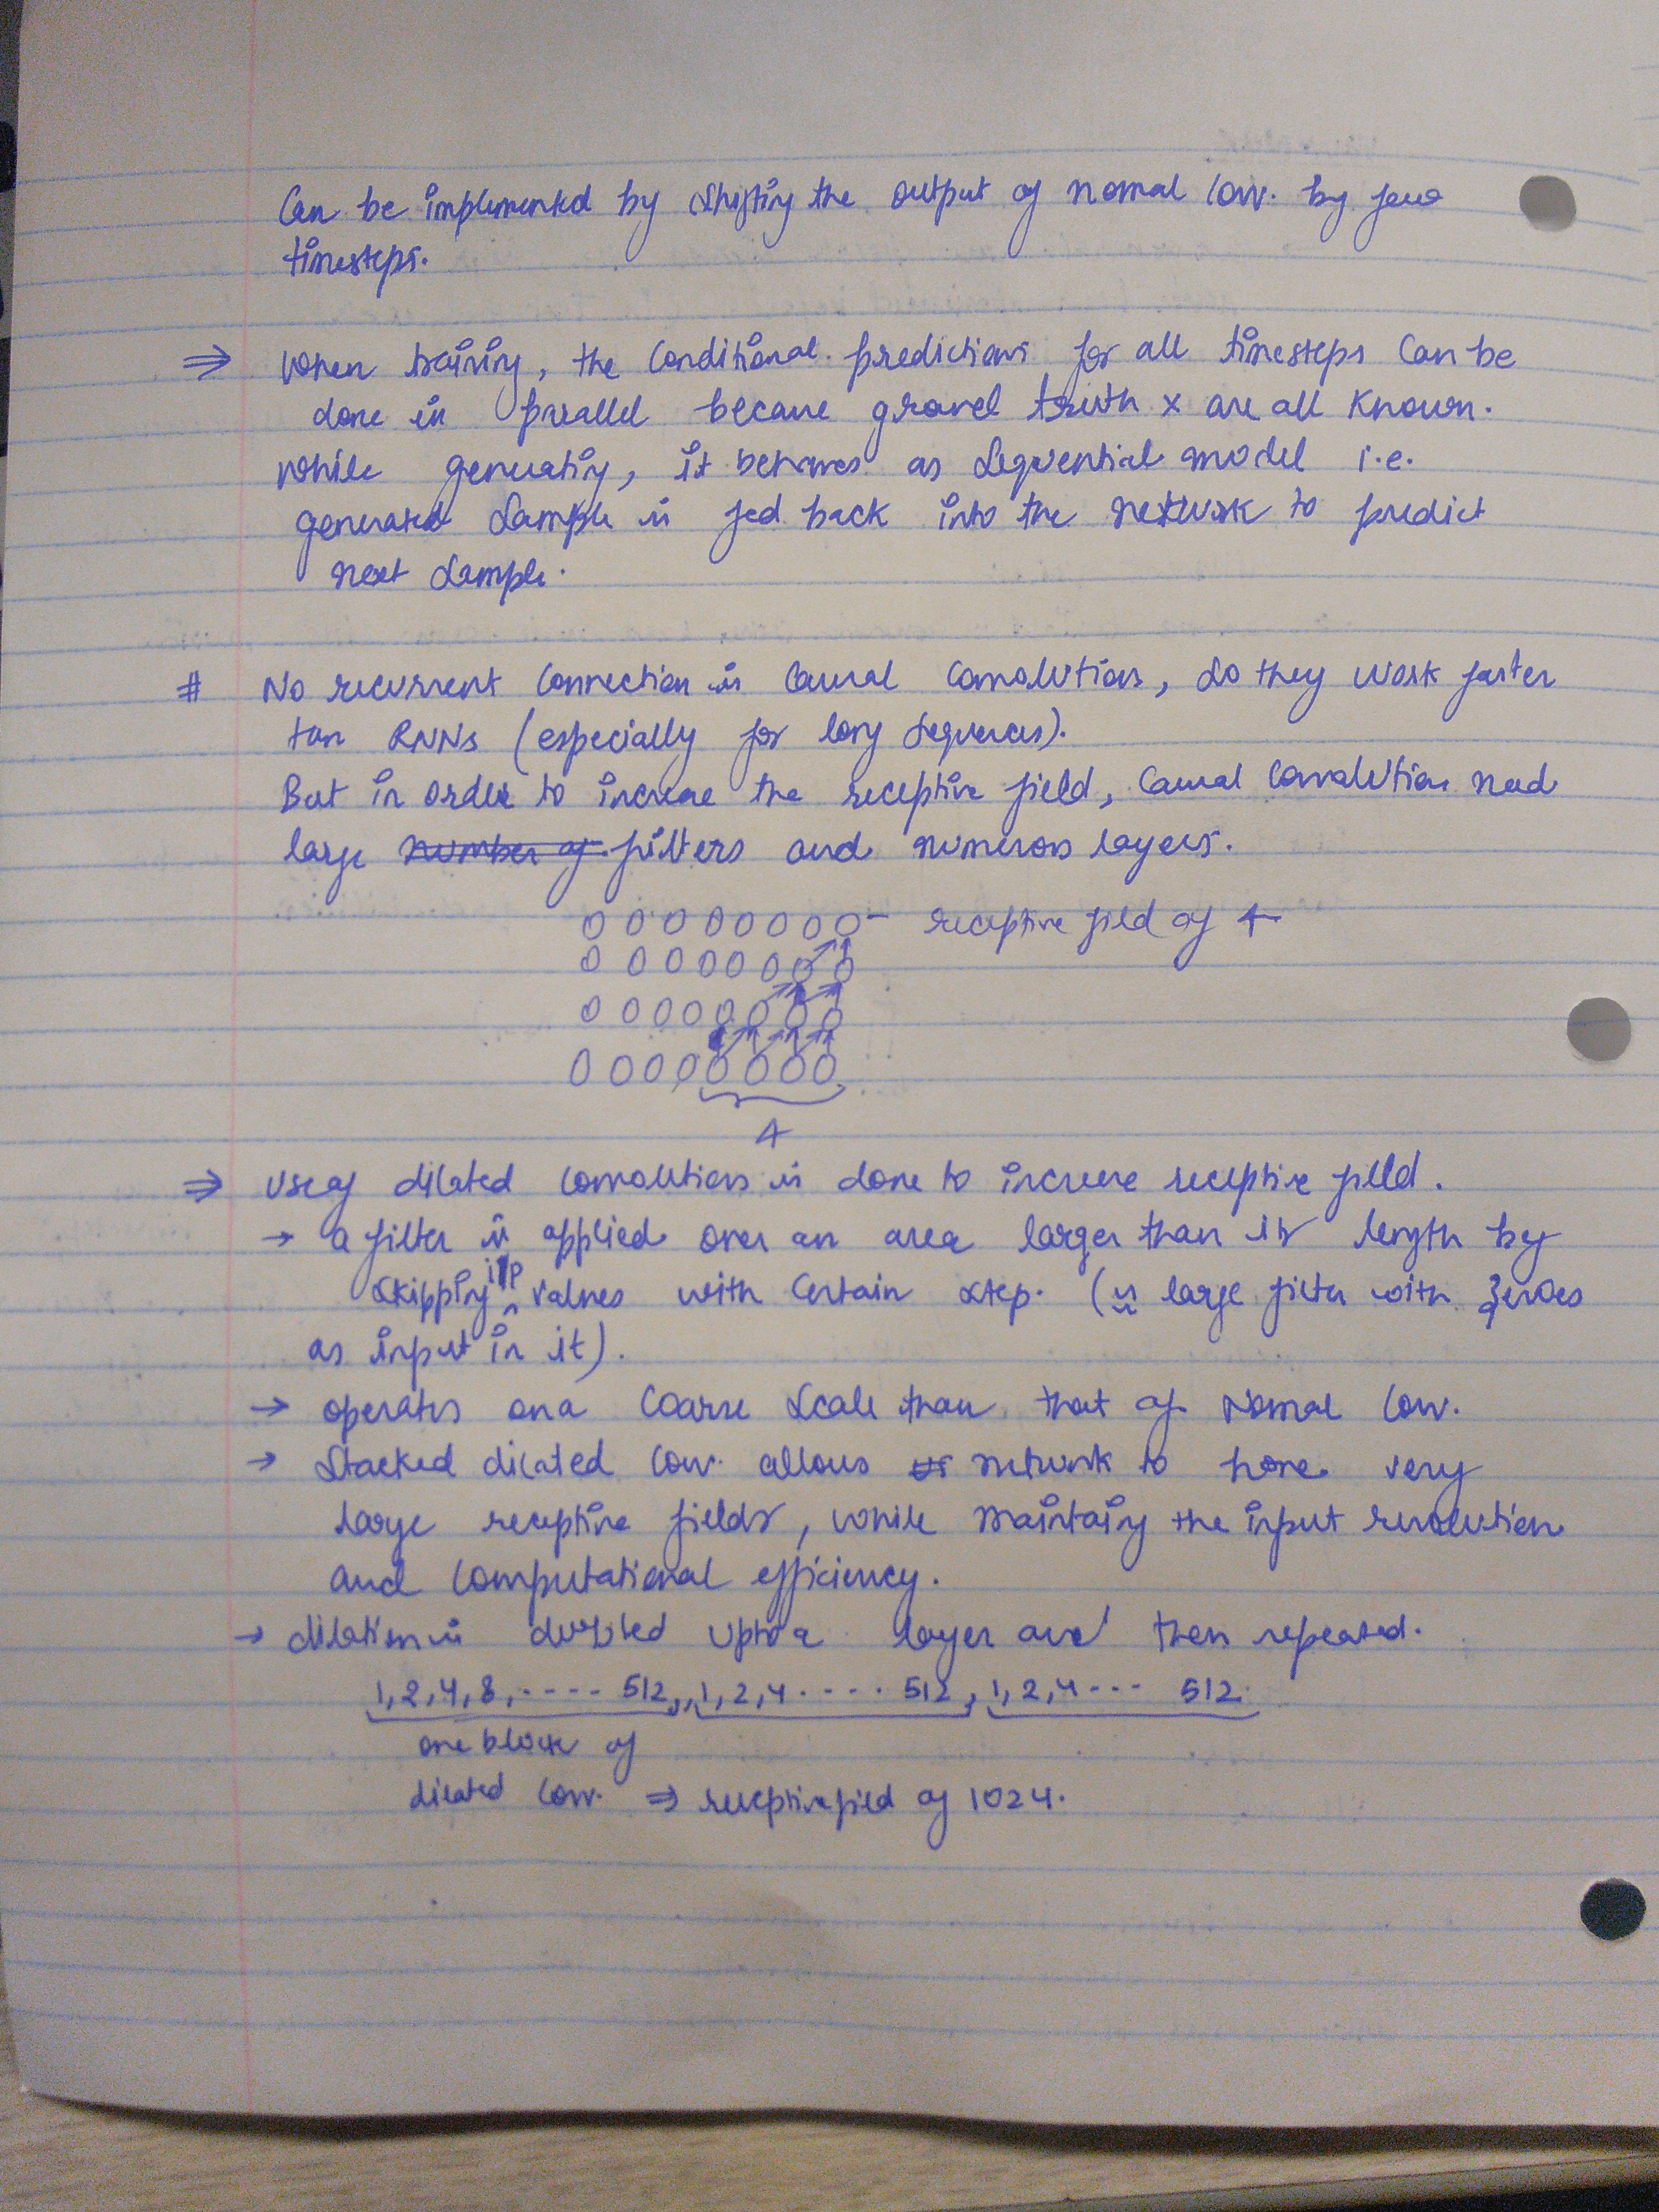 Can be implemented by shifting the output of normal conv. by few
timesteps.
⇒ When training, the conditional predictions for all timesteps can be
done in parallel because ground truth x are all known.
While generating, it behaves as sequential model i.e.
generated sample is fed back into the network to predict
next sample.
# No recurrent connection in causal convolutions, so they work faster
tan RNNs (especially for long sequences).
But in order to increase the receptive field, causal convolution need
large number of filters and numerous layers.
0 0 0 0 0 0 0 0 - receptive field of 4
0 0 0 0 0 0 0 0
0 0 0 0 0 0 0 0
0 0 0 0 0 0 0 0
4
⇒ Use of dilated convolutions is done to increase receptive field.
→ a filter is applied over an area larger than its length by
skipping i/p values with certain step. (≈ large filter with zeroes
as input in it).
→ operates on a coarse scale than that of normal conv.
→ Stacked dilated conv. allows network to have very
large receptive fields, while maintaing the input resolution
and computational efficiency.
→ dilation is doubled upto a layer and then repeated.
1, 2, 4, 8, ---- 512, 1, 2, 4 ---- 512, 1, 2, 4 --- 512.
one block of
dilated conv. ⇒ receptive field of 1024.